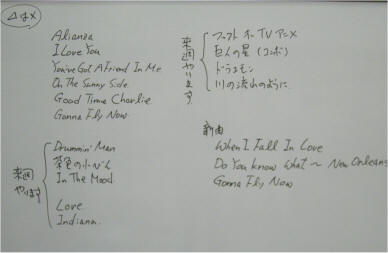 △は×
Alianza
I Love You
You've Got A Friend In Me
On The Sunny Side
Good Time Charlie
Gonna Fly Now
来週やります
ファースト ホーTVアニメ
巨人の星 (コンボ)
ドラえもん
川の流れのように
来週やります
Drummin' Man
茶色の小びん
In The Mood
Love
Indiana
新曲
When I Fall In Love
Do You Know What ~ New Orleans
Gonna Fly Now